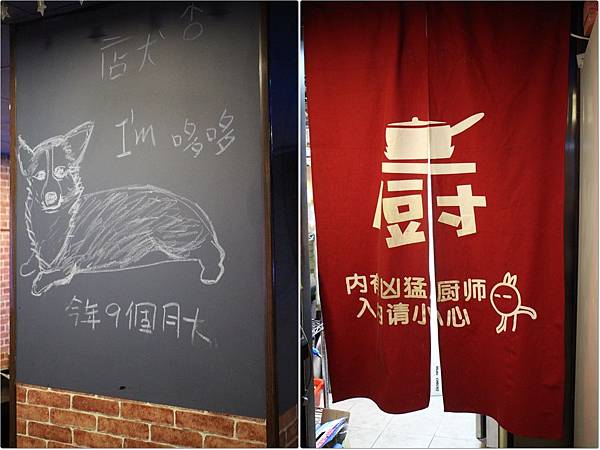 店犬
I'm 哆哆
今年9個月大
厨
内有凶猛厨师
入内请小心